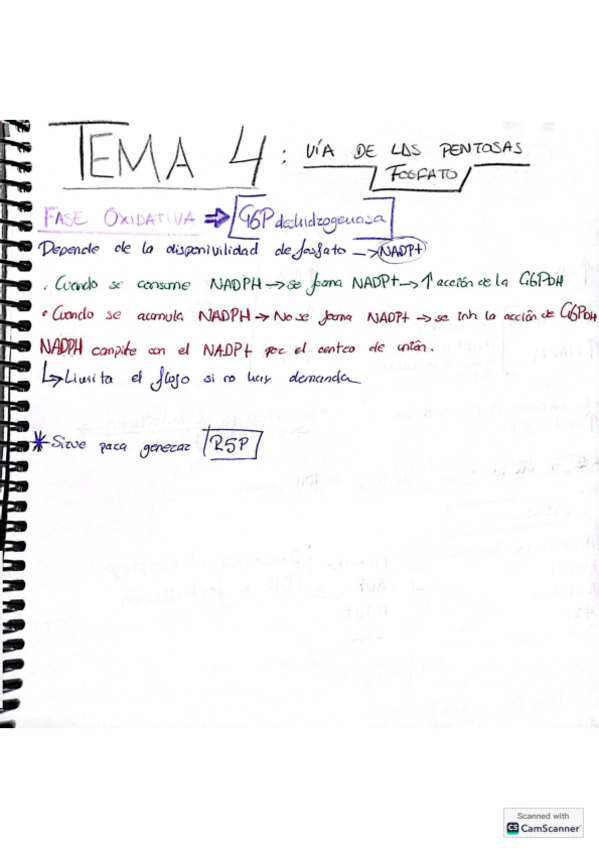 TEMA 4: VÍA DE LAS PENTOSAS
FOSFATO
FASE OXIDATIVA ⇒ G6P deshidrogenasa
Depende de la disponivilidad de fosfato → NADP+
· Cuando se consume NADPH → se forma NADP+ → ↑ acción de la G6PDH
• Cuando se acumula NADPH → No se forma NADP+ → se inh la acción de G6PDH
NADPH compite con el NADP+ por el centro de unión.
↳ Limita el flujo si no hay demanda
* Sirve para generar R5P
Scanned with
CS CamScanner